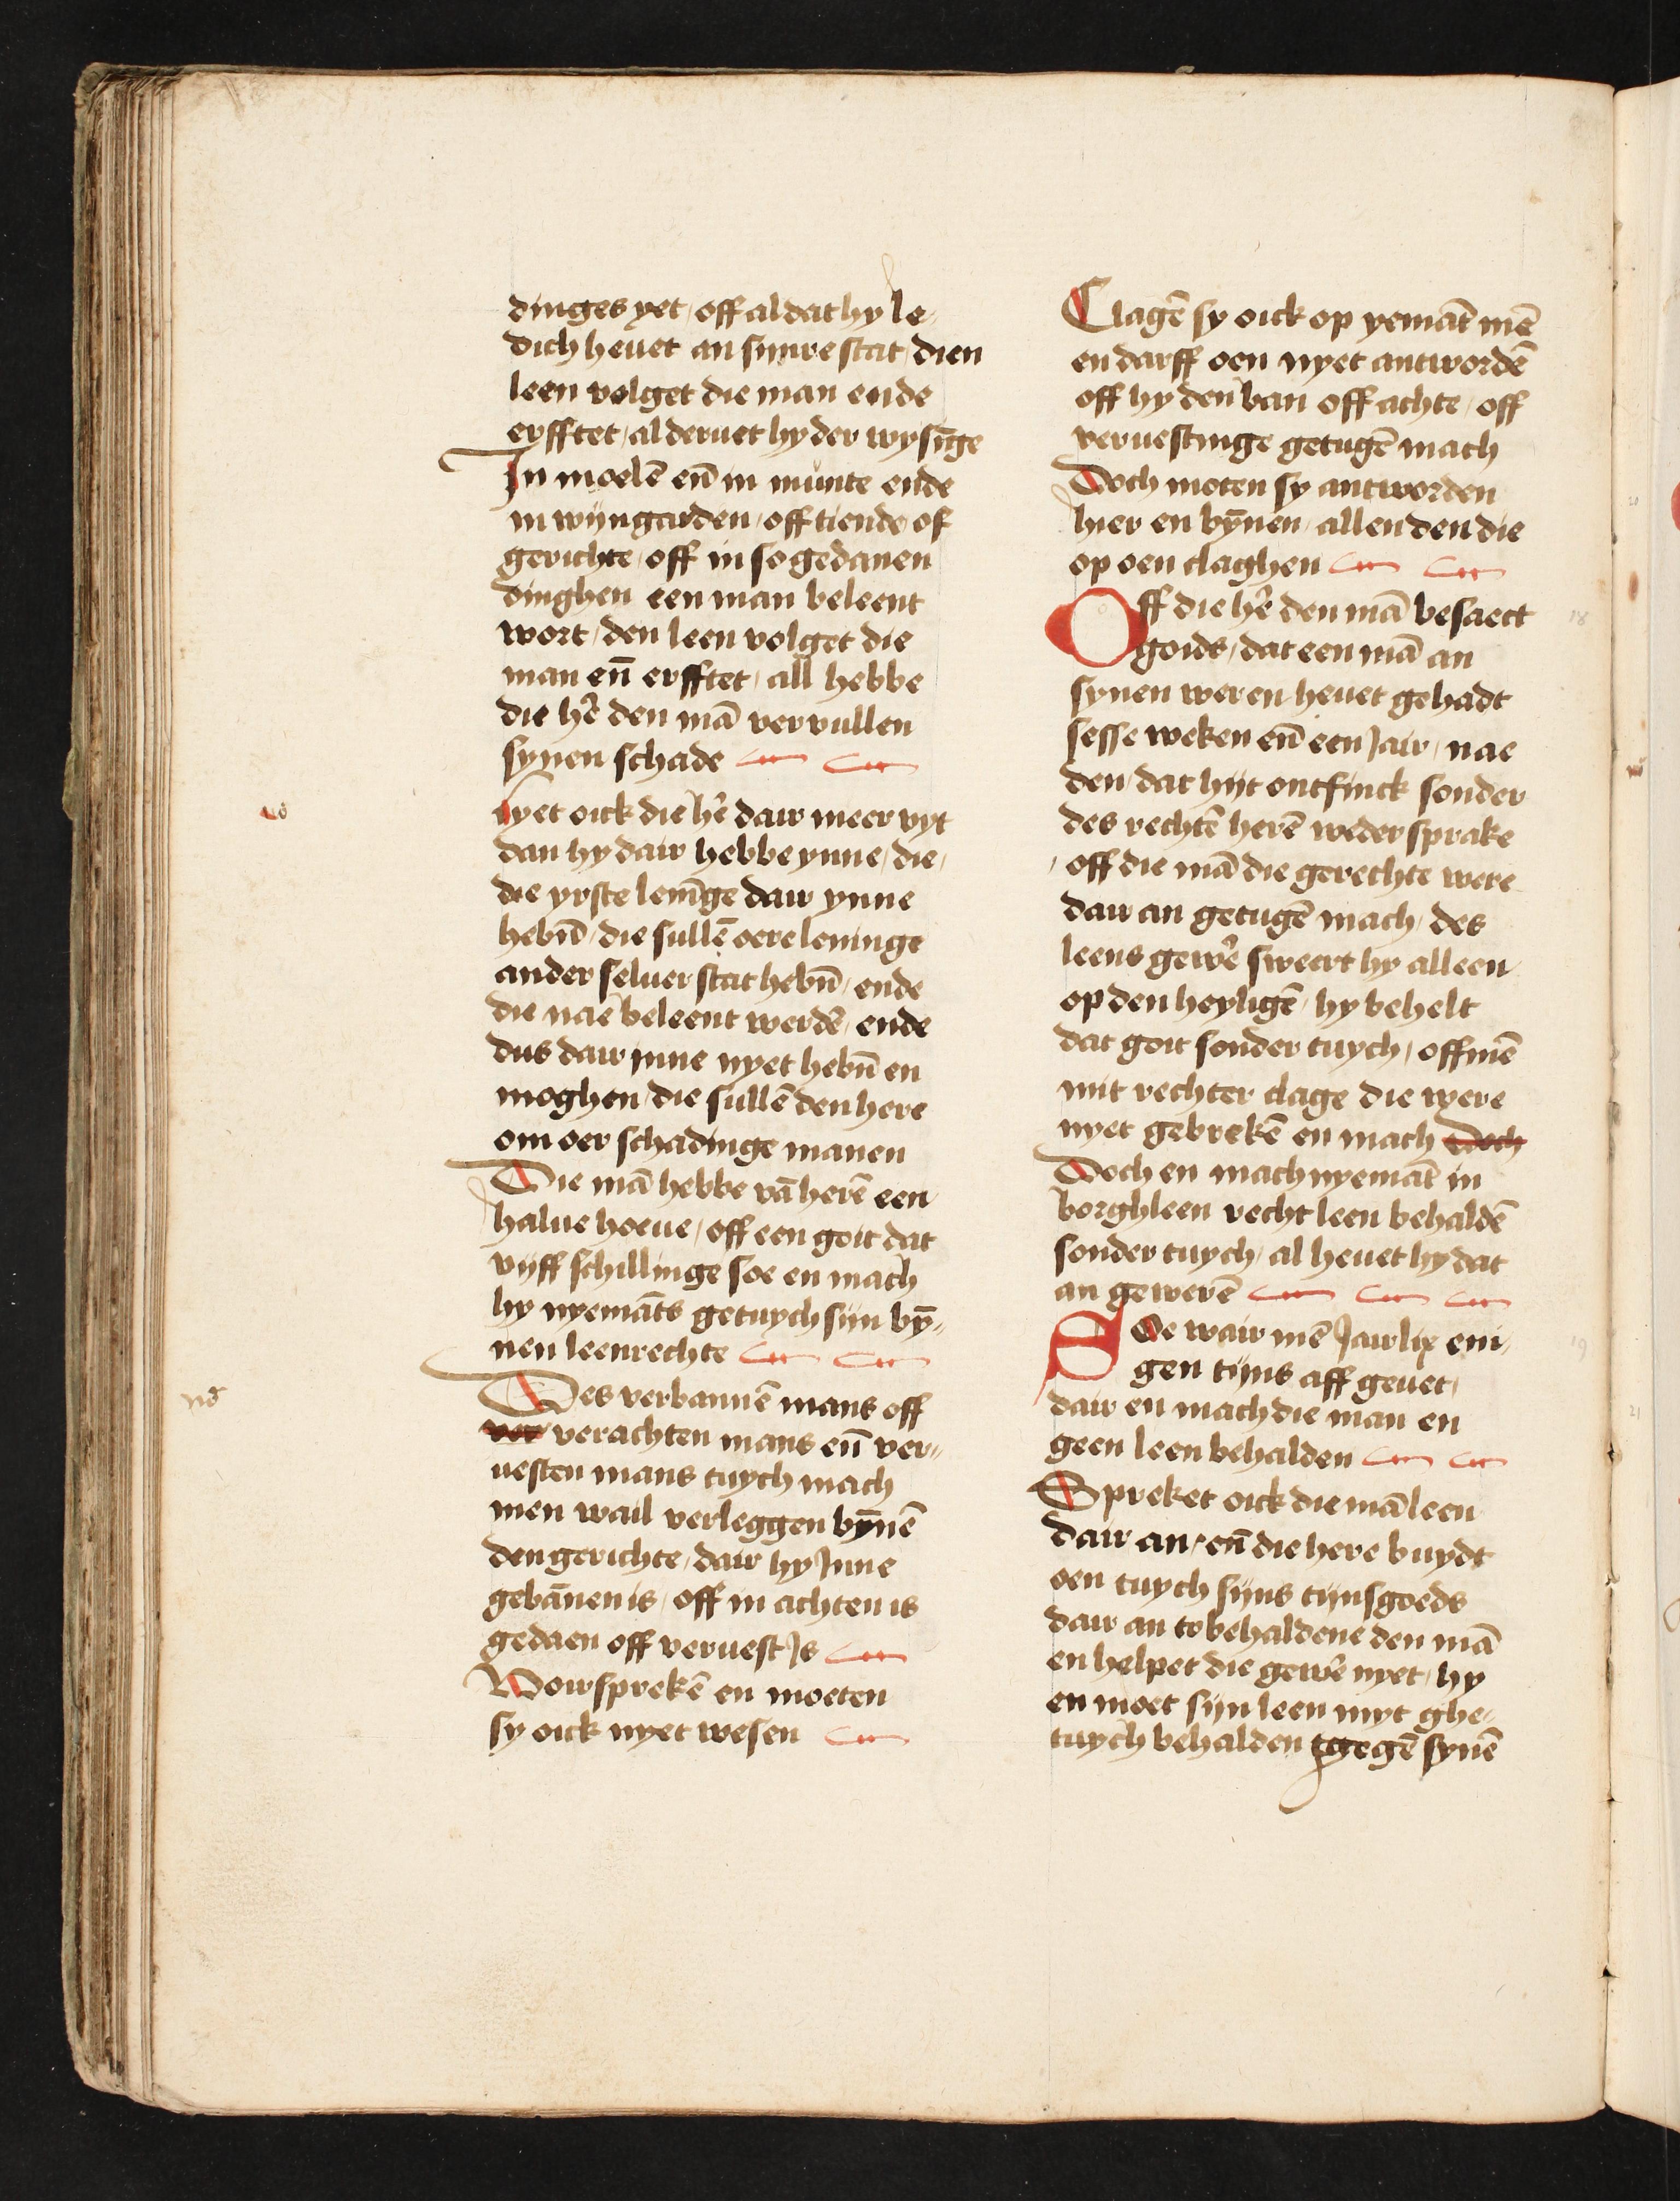 dinges yet / off al dat hy le„
dich heuet an sijnre stat / dien
leen volget die man ende
erfftet / al deruet hy der wysīge
In moelē eñ in munte ende
in wijngarden / off tiende of
gerichte / off in so gedanen
dinghen een man beleent
wort / den leen volget die
man eñ erfftet / all hebbe
die hē den mā vervullen
synen schade
lyet oick die hē dair meer vyt
dan hy dair hebbe ynne / die /
die yrste lenīge dair ynne
hebn̄ / die sullē oere leninge
ander seluer stat hebn̄ / ende
die nae beleent werdē / ende
dus dair inne nyet hebn̄ en
moghen / die sullē den here
om oer schadinge manen
Die mā hebbe vā herē een
halue hoeue / off een goit dat
vijff schillinge soe en mach
hy nyemāts getuych sijn bȳ„
nen leenrechte
nō
Des verbannē mans off
ver verachten mans eñ ver„
uesten mans tuych mach
men wail verleggen bȳnē
den gerichte / dair hy Jnne
gebānen is / off in achten is
gedaen off veruest Js
WorspreKē en moeten
sy oick nyet wesen
Clagē sy oick op yemāt mē
en darff oen nyet antwordē
off hy den ban off achte / off
veruestinge getugē mach
Doch moten sy antworden
hier en bȳnen / allen den die
op oen claghen
Off die hē den mā besaect
goids / dat een mā an
synen weren heuet gehadt
sesse weken eñ een Jair / nae
den / dat hijt ontfinck sonder
des rechtē herē weder sprake
/ off die mā die gerechte were
dair an getugē mach / des
leens gewē sweert hy alleen
op den heyligē / hy behelt
dat goit sonder tuych / off mē
mit rechter clage die were
nyet gebrekē en mach Doch
Doch en mach nyemāt in
borghleen recht leen behaldē
sonder tuych / al heuet hy dat
an gewerē
18
De wair mē Jairlix eni„
gen tijns aff geuet /
dair en mach die man en
geen leen behalden
19
Spreket oick die mā leen
dair an / eñ die here buydt
oen tuych sijns tijnsgoeds
dair an to behaldene den mā
en helpet die gewē nyet / hy
en moet sijn leen myt ghe„
tuych behalden tgegē synē